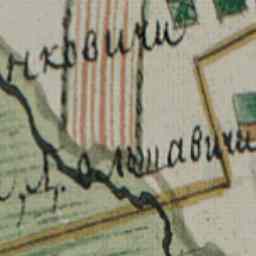 нковичи
Д. Ольшавичи